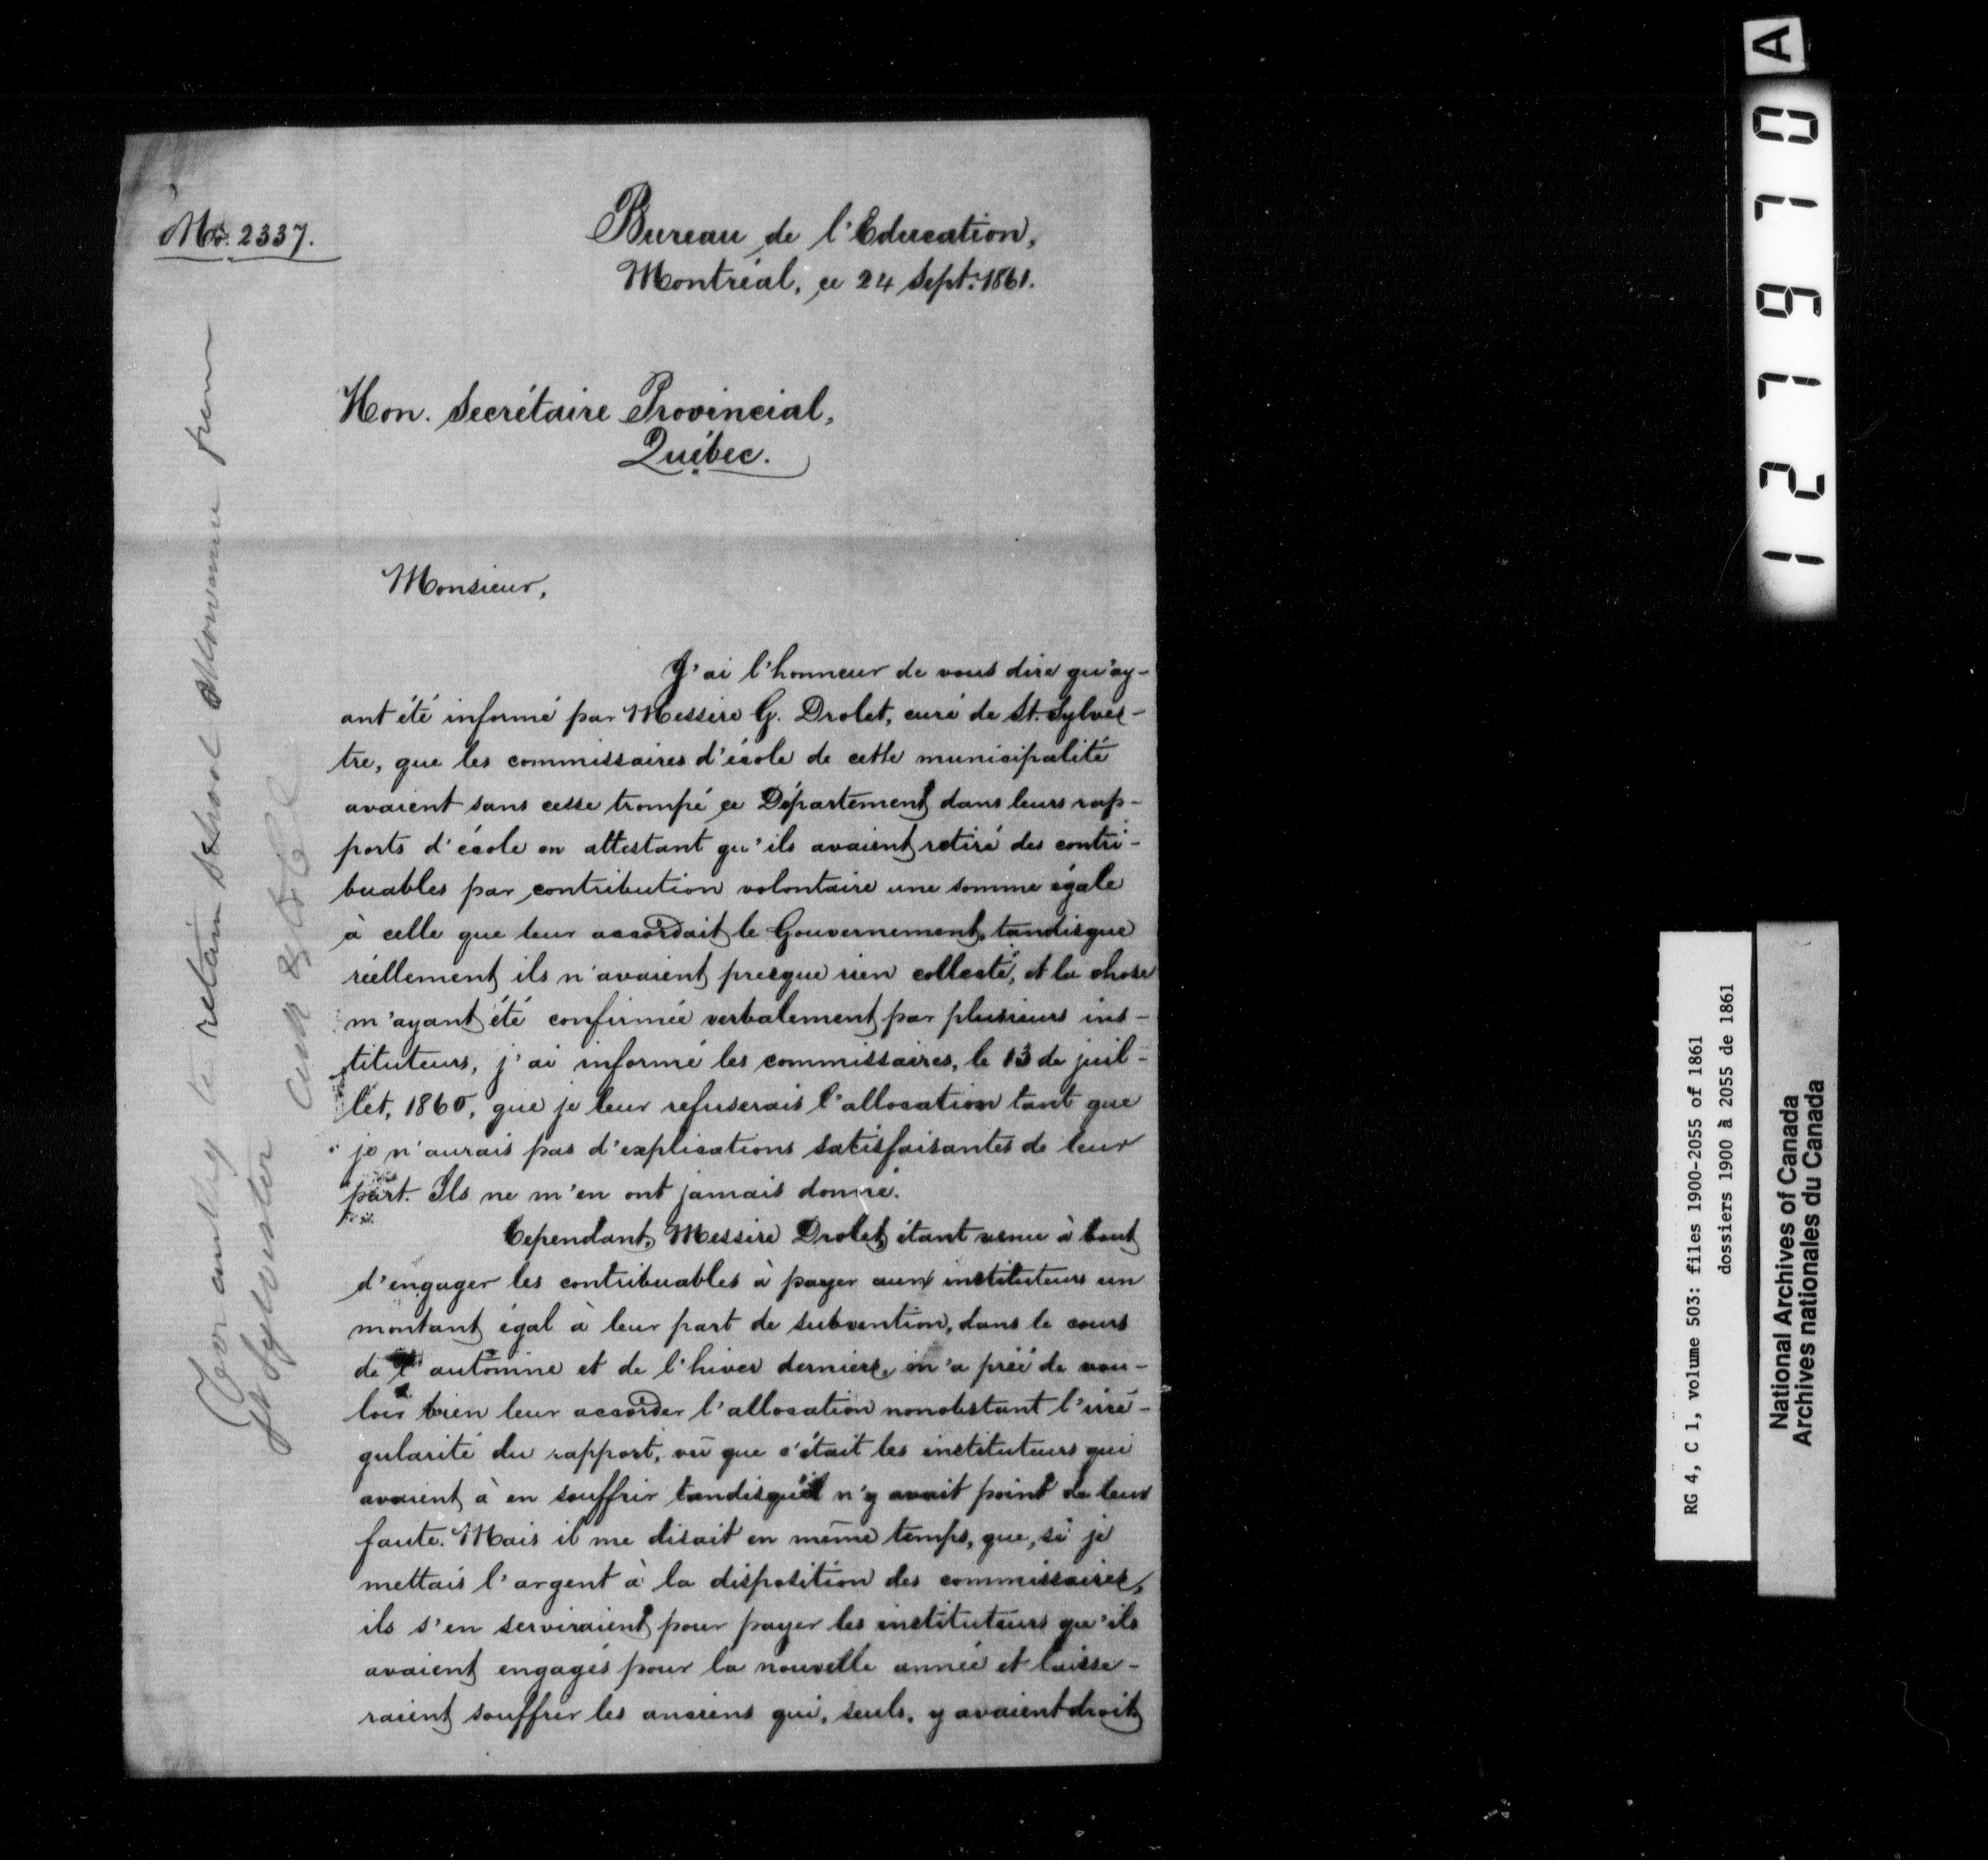 No. 2337.
Bureau de l'Education,
Montréal, ce 24 Sept. 1861.
Hon. Secrétaire Provincial,
Québec.
Monsieur,
J'ai l'honneur de vous dire qu'ay-
ant été informé par Messire G. Drolet, curé de St. Sylves-
tre, que les commissaires d'école de cette municipalité
avaient sans cesse trompé ce Département dans leurs rap-
ports d'école en attestant qu'ils avaient retiré des contri-
buables par contribution volontaire une somme égale
à celle que leur accordait le Gouvernement, tandisque
réellement ils n'avaient presque rien collecté, et la chose
m'ayant été confirmée verbalement par plusieurs ins-
tituteurs, j'ai informé les commissaires, le 13 de juil-
let, 1860, que je leur refuserais l'allocation tant que
je n'aurais pas d'explications satisfaisantes de leur
part. Ils ne m'en ont jamais donné.
Cependant, Messire Drolet, étant venu à bout
d'engager les contribuables à payer aux instituteurs un
montant égal à leur part de subvention, dans le cours
de l'automne et de l'hiver derniers, m'a prié de vou-
loir bien leur accorder l'allocation nonobstant l'irré-
gularité du rapport, vû que c'était les instituteurs qui
avaient à en souffrir tandisqu'il n'y avait point de leur
faute. Mais il me disait en même temps, que, si je
mettais l'argent à la disposition des commissaires,
ils s'en serviraient pour payer les instituteurs qu'ils
avaient engagés pour la nouvelle année et laisse-
raient souffrir les anciens qui, seuls, y avaient droit
For auth'y to retain School Allowance from
St Sylvester
A
127970
RG 4, C 1, volume 503: files 1900-2055 of 1861
dossiers 1900 à 2055 de 1861
National Archives of Canada
Archives nationales du Canada